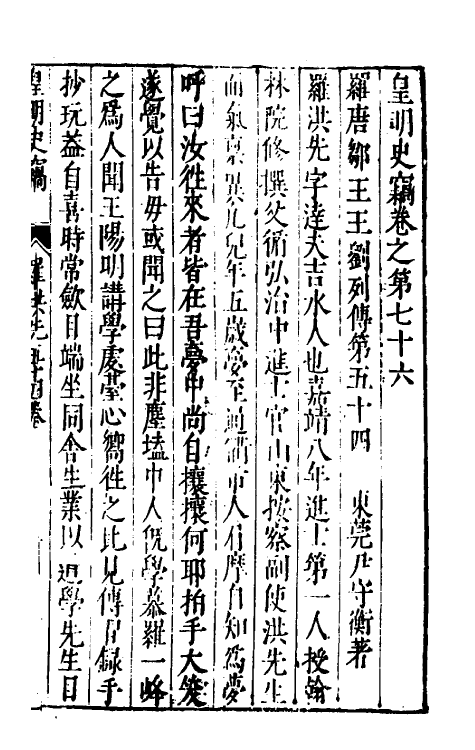 皇明史竊卷之第七十六
羅唐鄒王王劉列傳第五十四　東莞尹守衡著
羅洪先字達夫吉水人也嘉靖八年進士第一人授翰
林院修撰父循弘治中進士官山東按察副使洪先生
而氣稟異凡兒年五歲夢至通衢市人肩摩自知為夢
呼曰汝徃來者皆在吾夢中尚自攘攘何耶拍手大笑
遂覺以告毋或聞之曰此非塵壒中人旣學慕羅一峰
之爲人聞王陽明講學虔臺心嚮徃之比見傳習錄手
抄玩益自喜時常歛目端坐同舍生業以道學先生目
皇明史竊　羅洪先傳